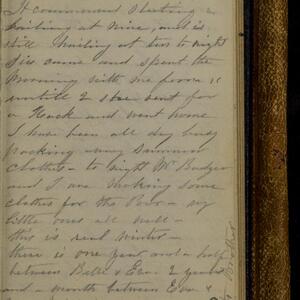 It commenced sleeting &
hailing at nine, and is
still hailing at ten to night
Sis came and spent the
Morning with me from
untill 2 she sent for
a Hack and went home
I have been all day busy
packing away summer
clothes - to night Mr Badger
and I are making some
clothes for the Poor - my
little ones all well -
this is real winter -
there is one year and a half
between Belle & Eva 2 years
and a month between Eva &
Brother